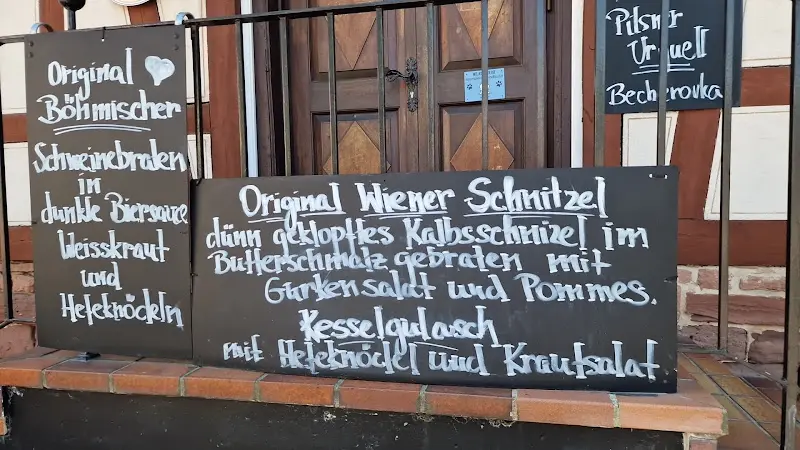 Original
Böhmischer
Schweinebraten
in
dunkle Biersauce
Weisskraut
und
Hefeknödeln
Original Wiener Schnitzel
dünn geklopftes Kalbsschnizel im
Butterschmalz gebraten mit
Gurkensalat und Pommes.
Kesselgulasch
mit Hefeknödel und Krautsalat
Pilsner
Urquell
Becherovka